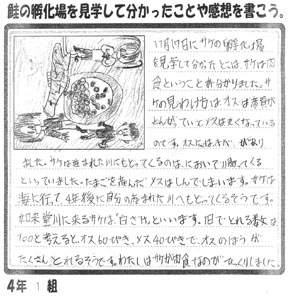 鮭の孵化場を見学して分かったことや感想を書こう。
11月17日にサケの孵化場
を見学して分かったことは、サケは肉
食ということが分かりました。サ
ケの見わけ方は、オスは鼻が
とんがっていてメスは丸くなっている
のです。オスには、キバ がありました。
サケは産まれた川にもどってくるのは、においで川へ戻ってくる
といっていました。たまごを産んだメスはしんでしまいます。サケは
海に行て、4年後に自分の産まれた川へもどってくるそうです。
如来堂川に来るサケは「白ざけ」といいます。1日でとれる数は
100と考えるとオス60ぴき、メス40ぴきで、オスのほうが
たくさんとれるそうです。わたしはサケが肉食なのがびっくりしました。
4年 1 組